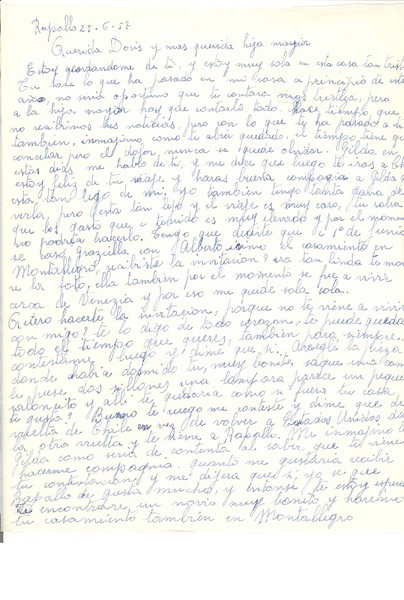 Rapallo 25-6-58
Querida Doris y mas querida hija mayor
Estoy acordandome de ti, y estoy muy sola en esta casa tan triste
lo que ha pasado en mi casa a principio de este
año no seria oportuno que te contara mas tristeza, pero
a la hija mayor hay que contarlo todo. Hace tiempo que
no recibimos tus noticias, pero con lo que te ha pasado a ti
tambien, inmagino como te abrá quedado, el tiempo tiene que
pero el dolor nunca se puede olvidar. Gilda en
estos dias me hablo de ti, y me dice que luego te iras a
estoy feliz de tu viaje y haras buena compagnia a Gilda que
esta tan lejo de mi. Yo tambien tengo tanta gana de
verla, pero esta tan lejo y el viaje es muy caro, tu sabes
que los gasto que e tenido es muy elevado y por el momento
no podria hacerlo. Tengo que decirte que el 1° de junio
se caso Graziella con Alberto, el casamiento en
Montallegro, recibiste la invitacion? era tan linda te
la foto, ella tambien por el momento se fue a vivir
cerca de Venezia y por eso me quede sola sola.
Quiero hacerte la invitacion, porque no te viene a vivir
con migo? te lo digo de todo corazon, te puede quedar
todo el tiempo que queres, tambien para siempre.
contentame luego y dime que si. Arregle la pieza
donde habia dormido tu, muy bonita, saque una cama
le puse dos sillones una lampara parece un pequeño
saloncito y alli te quedaria como si fuera tu casa
te gusta? Bueno te ruego me conteste y dime que de
vuelta de Chile en vez de volver a Estados Unidos da
la otra vuelta y te viene a Rapallo. Me inmagino la
Gilda como seria de contenta al saber que te viene
hacerme compagnia. Quanto me gustaria recibir
tu contestacion y me dijera que si, ya se que
Rapallo te gusta mucho, y entonse te estoy
te encontrare un novio muy bonito y haremos
tu casamiento tambien en Montallegro